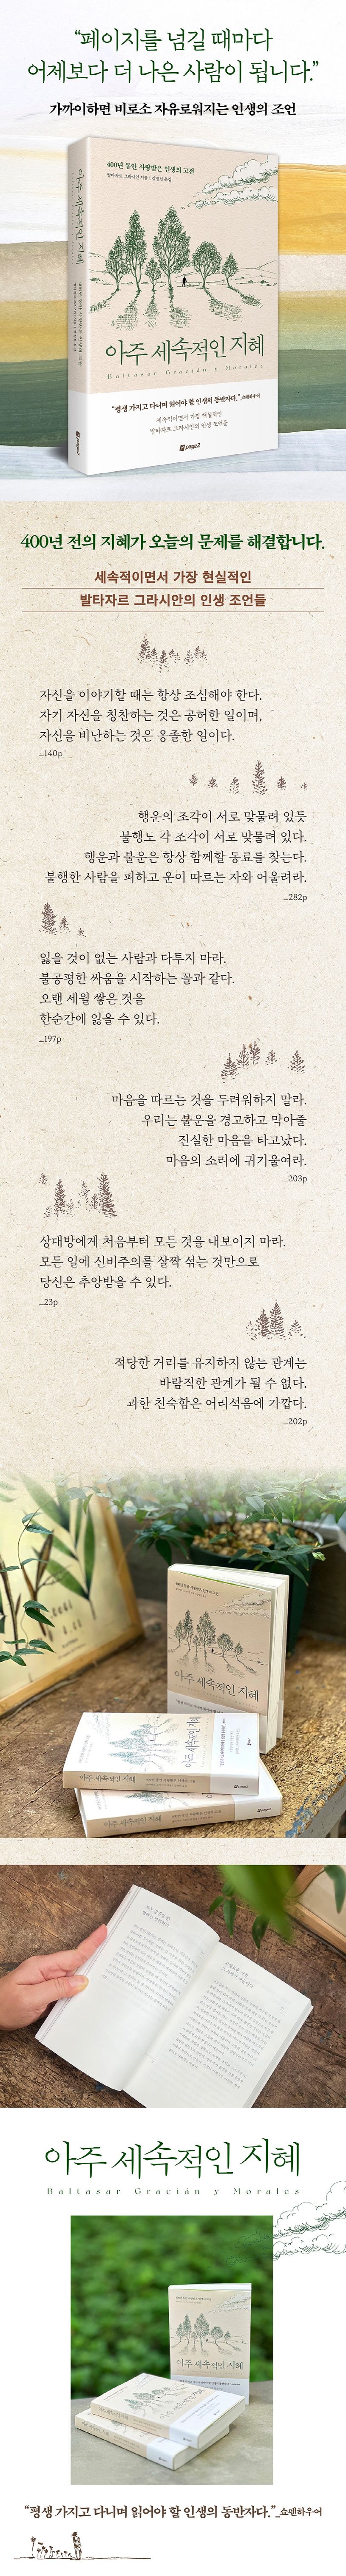 “페이지를 넘길 때마다
어제보다 더 나은 사람이 됩니다.”
가까이하면 비로소 자유로워지는 인생의 조언
400년 동안 사랑받은 인생의 고전
아주 세속적인 지혜
Baltasar Gracián y Morales
“평생 가지고 다니며 읽어야 할 인생의 동반자다.”_쇼펜하우어
세속적이면서 가장 현실적인
발타자르 그라시안의 인생 조언들
page2
아주 세속적인 지혜
400년 전의 지혜가 오늘의 문제를 해결합니다.
세속적이면서 가장 현실적인
발타자르 그라시안의 인생 조언들
자신을 이야기할 때는 항상 조심해야 한다.
자기 자신을 칭찬하는 것은 공허한 일이며,
자신을 비난하는 것은 옹졸한 일이다.
_140p
행운의 조각이 서로 맞물려 있듯
불행도 각 조각이 서로 맞물려 있다.
행운과 불운은 항상 함께할 동료를 찾는다.
불행한 사람을 피하고 운이 따르는 자와 어울려라.
_282p
잃을 것이 없는 사람과 다투지 마라.
불공평한 싸움을 시작하는 꼴과 같다.
오랜 세월 쌓은 것을
한순간에 잃을 수 있다.
_197p
마음을 따르는 것을 두려워하지 말라.
우리는 불운을 경고하고 막아줄
진실한 마음을 타고났다.
마음의 소리에 귀기울여라.
_203p
상대방에게 처음부터 모든 것을 내보이지 마라.
모든 일에 신비주의를 살짝 섞는 것만으로
당신은 추앙받을 수 있다.
_23p
적당한 거리를 유지하지 않는 관계는
바람직한 관계가 될 수 없다.
과한 친숙함은 어리석음에 가깝다.
_202p
아주 세속적인 지혜
아주 세속적인 지혜
아주 세속적인 지혜
아주 세속적인 지혜
아주 세속적인 지혜
Baltasar Gracián y Morales
아주 세속적인 지혜
“평생 가지고 다니며 읽어야 할 인생의 동반자다.”_쇼펜하우어